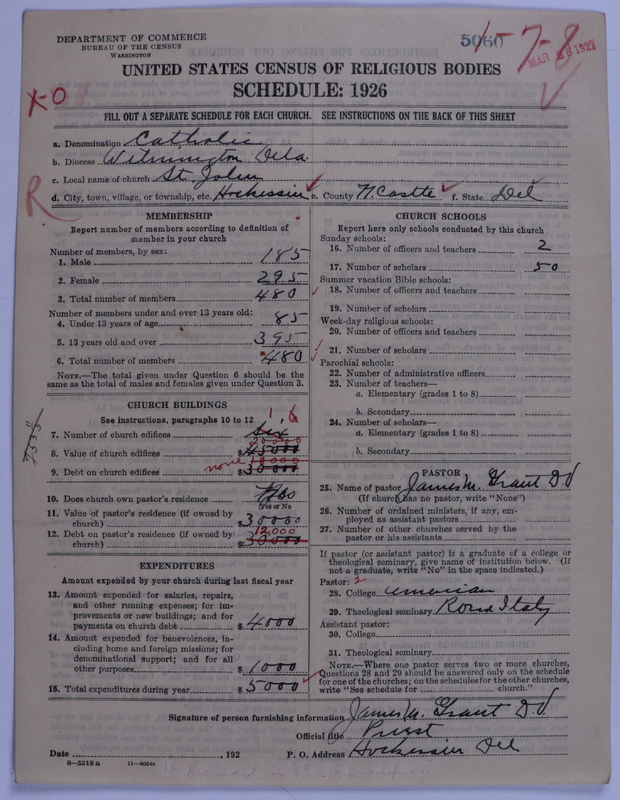 DEPARTMENT OF COMMERCE
BUREAU OF THE CENSUS
WASHINGTON
5060
1-7-8
MAR 26 1927
UNITED STATES CENSUS OF RELIGIOUS BODIES
SCHEDULE: 1926
X-O
FILL OUT A SEPARATE SCHEDULE FOR EACH CHURCH. SEE INSTRUCTIONS ON THE BACK OF THIS SHEET
a. Denomination Catholic
b. Diocese Wilmington Dela.
c. Local name of church St. John
d. City, town, village, or township, etc. Hockessin e. County N. Castle f. State Del
R
MEMBERSHIP
Report number of members according to definition of
member in your church
Number of members, by sex:
1. Male 185
2. Female 295
3. Total number of members 480
Number of members under and over 13 years old:
4. Under 13 years of age 85
5. 13 years old and over 395
6. Total number of members 480
NOTE.—The total given under Question 6 should be
same as the total of males and females given under Question 3.
CHURCH BUILDINGS
See instructions, paragraphs 10 to 12
7. Number of church edifices six
8. Value of church edifices $
9. Debt on church edifices none $ 30000
10. Does church own pastor's residence
(Yes or No
11. Value of pastor's residence (if owned by
church) $ 30000
12. Debt on pastor's residence (if owned by
church) 12,000 $ 30000
EXPENDITURES
Amount expended by your church during last fiscal year
13. Amount expended for salaries, repairs,
and other running expenses; for im-
provements or new buildings; and for
payments on church debt $ 4000
14. Amount expended for benevolences, in-
cluding home and foreign missions; for
denominational support; and for all
other purposes $ 1000
15. Total expenditures during year $ 5000
CHURCH SCHOOLS
Report here only schools conducted by this church
Sunday schools:
16. Number of officers and teachers 2
17. Number of scholars 50
Summer vacation Bible schools:
18. Number of officers and teachers
19. Number of scholars
Week-day religious schools:
20. Number of officers and teachers
21. Number of scholars
Parochial schools:
22. Number of administrative officers
23. Number of teachers—
a. Elementary (grades 1 to 8)
b. Secondary
24. Number of scholars—
a. Elementary (grades 1 to 8)
b. Secondary
PASTOR
25. Name of pastor James M. Grant D D
(If church has no pastor, write "None")
26. Number of ordained ministers, if any, em-
ployed as assistant pastors
27. Number of other churches served by the
pastor or his assistants
If pastor (or assistant pastor) is a graduate of a college or
theological seminary, give name of institution below. (If
not a graduate, write "No" in the space indicated.)
Pastor: 2
28. College American
29. Theological seminary Rome Italy
Assistant pastor:
30. College
31. Theological seminary
NOTE.—Where one pastor serves two or more churches,
Questions 28 and 29 should be answered only on the schedule
for one of the churches; on the schedules for the other churches,
write "See schedule for church."
Signature of person furnishing information James M. Grant D D
Official title Priest
Date , 192 P. O. Address Hockessin Del
8-5518a